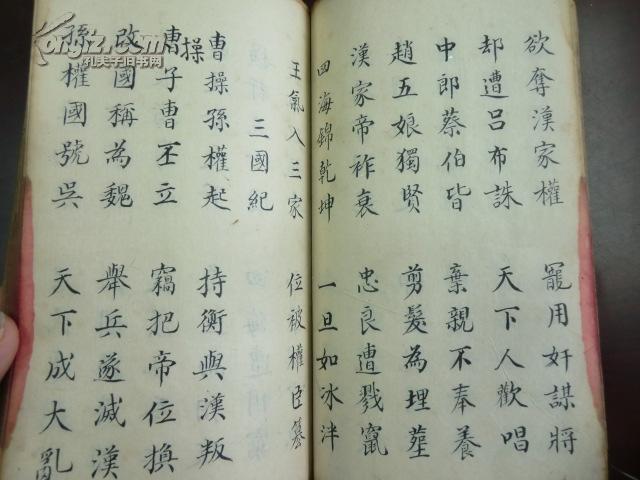 欲奪漢家權 罷用奸謀將
却遭呂布誅 天下人歡唱
中郎蔡伯皆 棄親不奉養
趙五娘獨賢 剪髮為埋塟
漢家帝祚衰 忠良遭戮竄
四海錦乾坤 一旦如冰泮
王氣入三家 位被權臣篡
三國紀
曹操孫權起 持衡與漢叛
曹操子曹丕立 竊把帝位換
改國稱為魏 舉兵遂滅漢
孫權國號吳 天下成大亂
kongfz.com
孔夫子旧书网